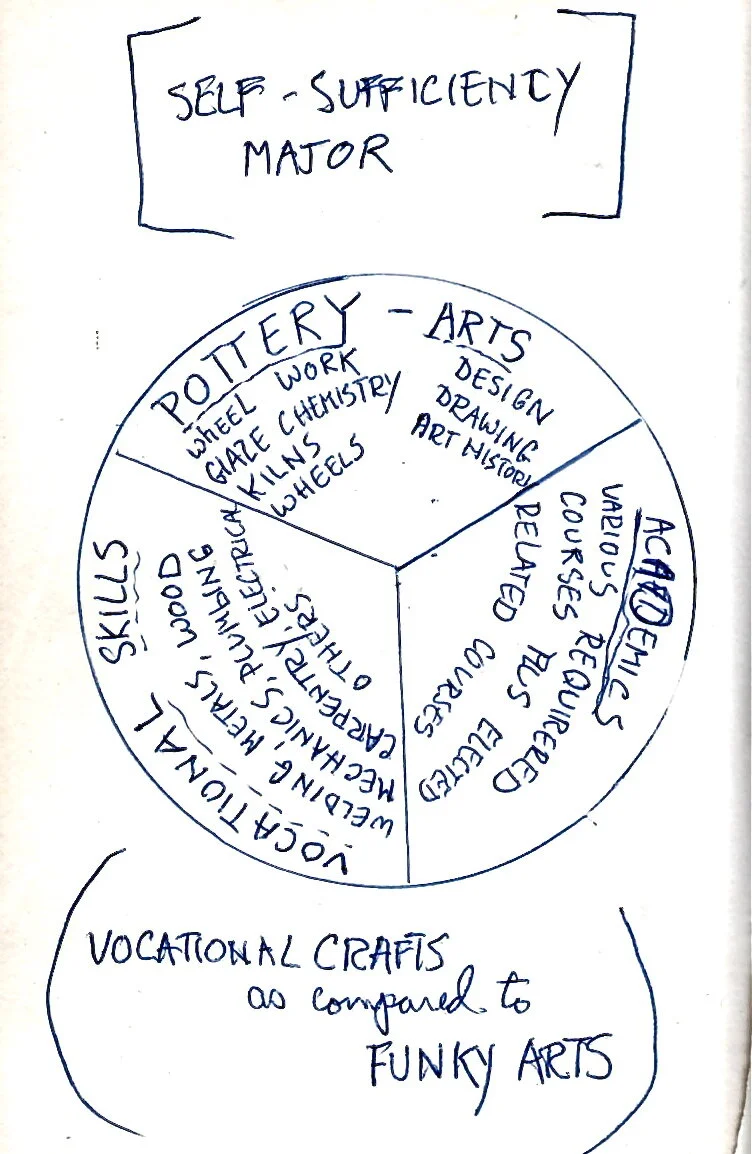 SELF-SUFFICIENCY
MAJOR
POTTERY - ARTS
WHEEL WORK
GLAZE CHEMISTRY
KILNS
WHEELS
DESIGN
DRAWING
ART HISTORY
ACADEMICS
VARIOUS REQUIRERED
COURSES PLS ELECTED
RELATED COURSES
VOCATIONAL SKILLS
WELDING, METALS, WOOD
MECHANICS, PLUMBING
CARPENTRY, ELECTRICAL
OTHERS
VOCATIONAL CRAFTS
as compared to
FUNKY ARTS